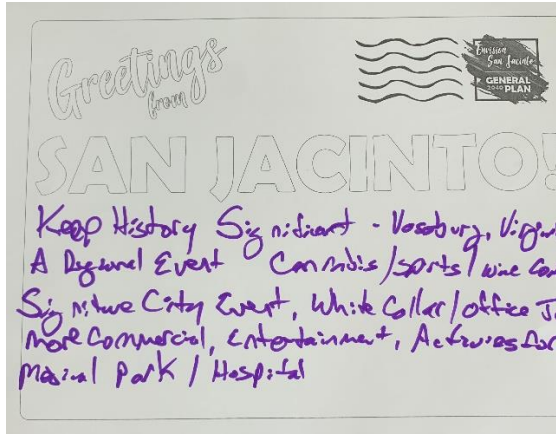 Greetings
from
Envision
San Jacinto
GENERAL
2040 PLAN
SAN JACINTO!
Keep History Significant - Vosburg,
A Regional Event Cannabis/sports/wine
Signiture City Event, White Collar/office
more Commercial, Entertainment, Activies for
Medical Park / Hospital